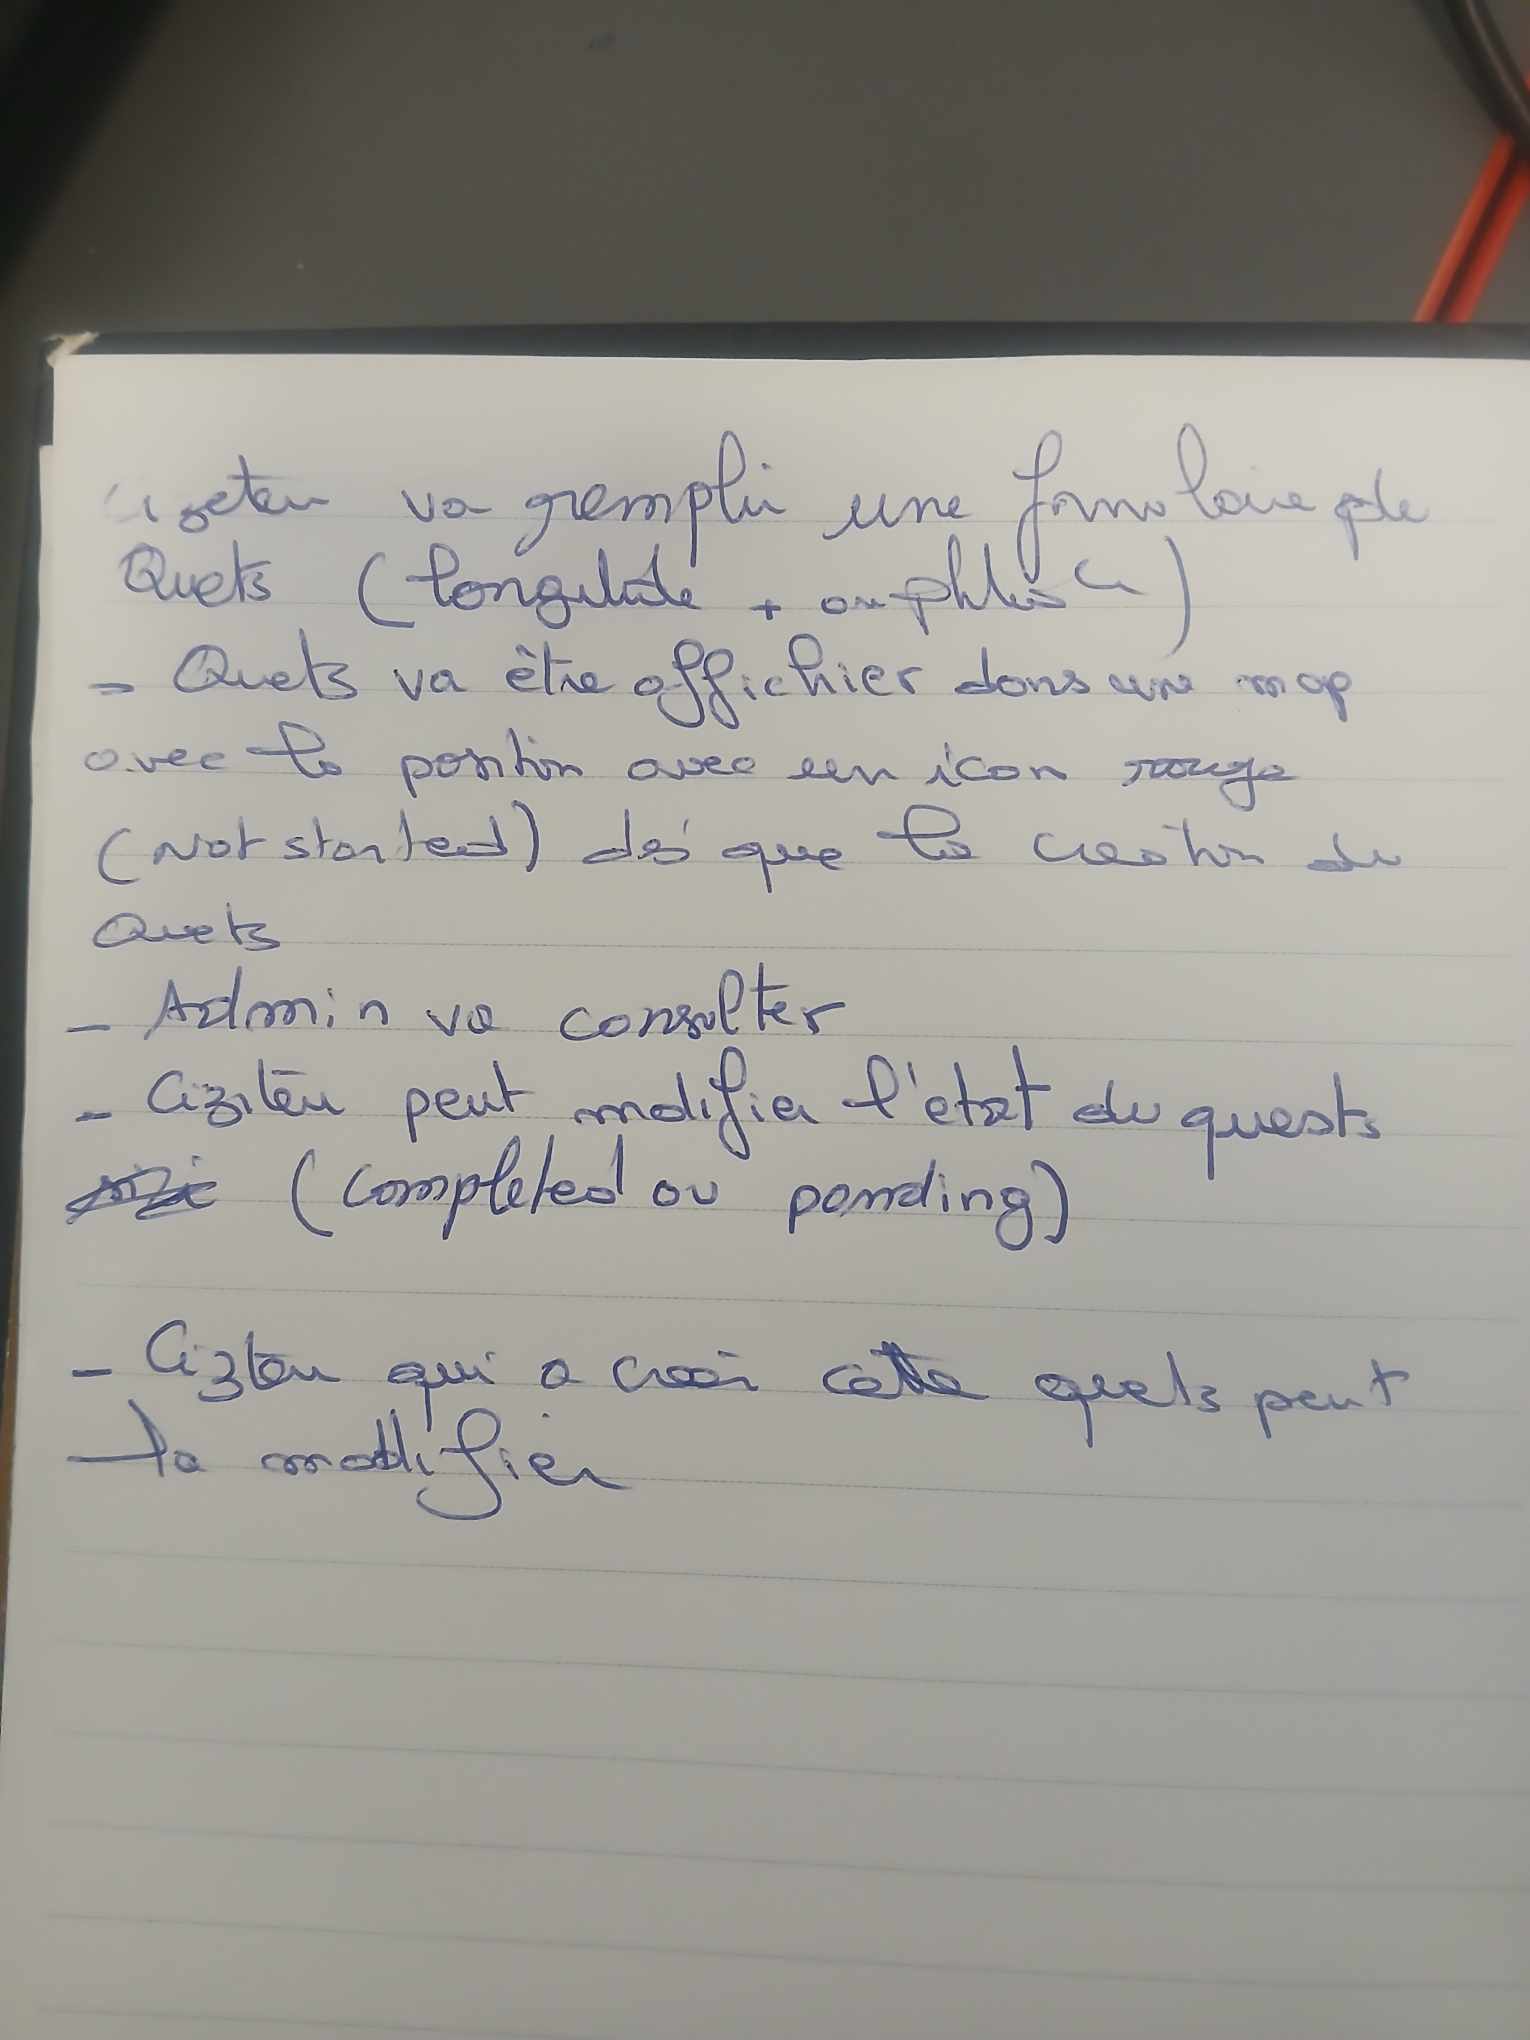 va remplir une formulaire de
Quets (longitude +
- Quets va être affichier dans une map
avec la position avec un icon rouge
(Not started) dés que la creation du
Quets
- Admin va consulter
- Ciziten peut modifier l'etat du quests
(completed ou pending)
- Cizten qui a creér cette quets peut
la modifier